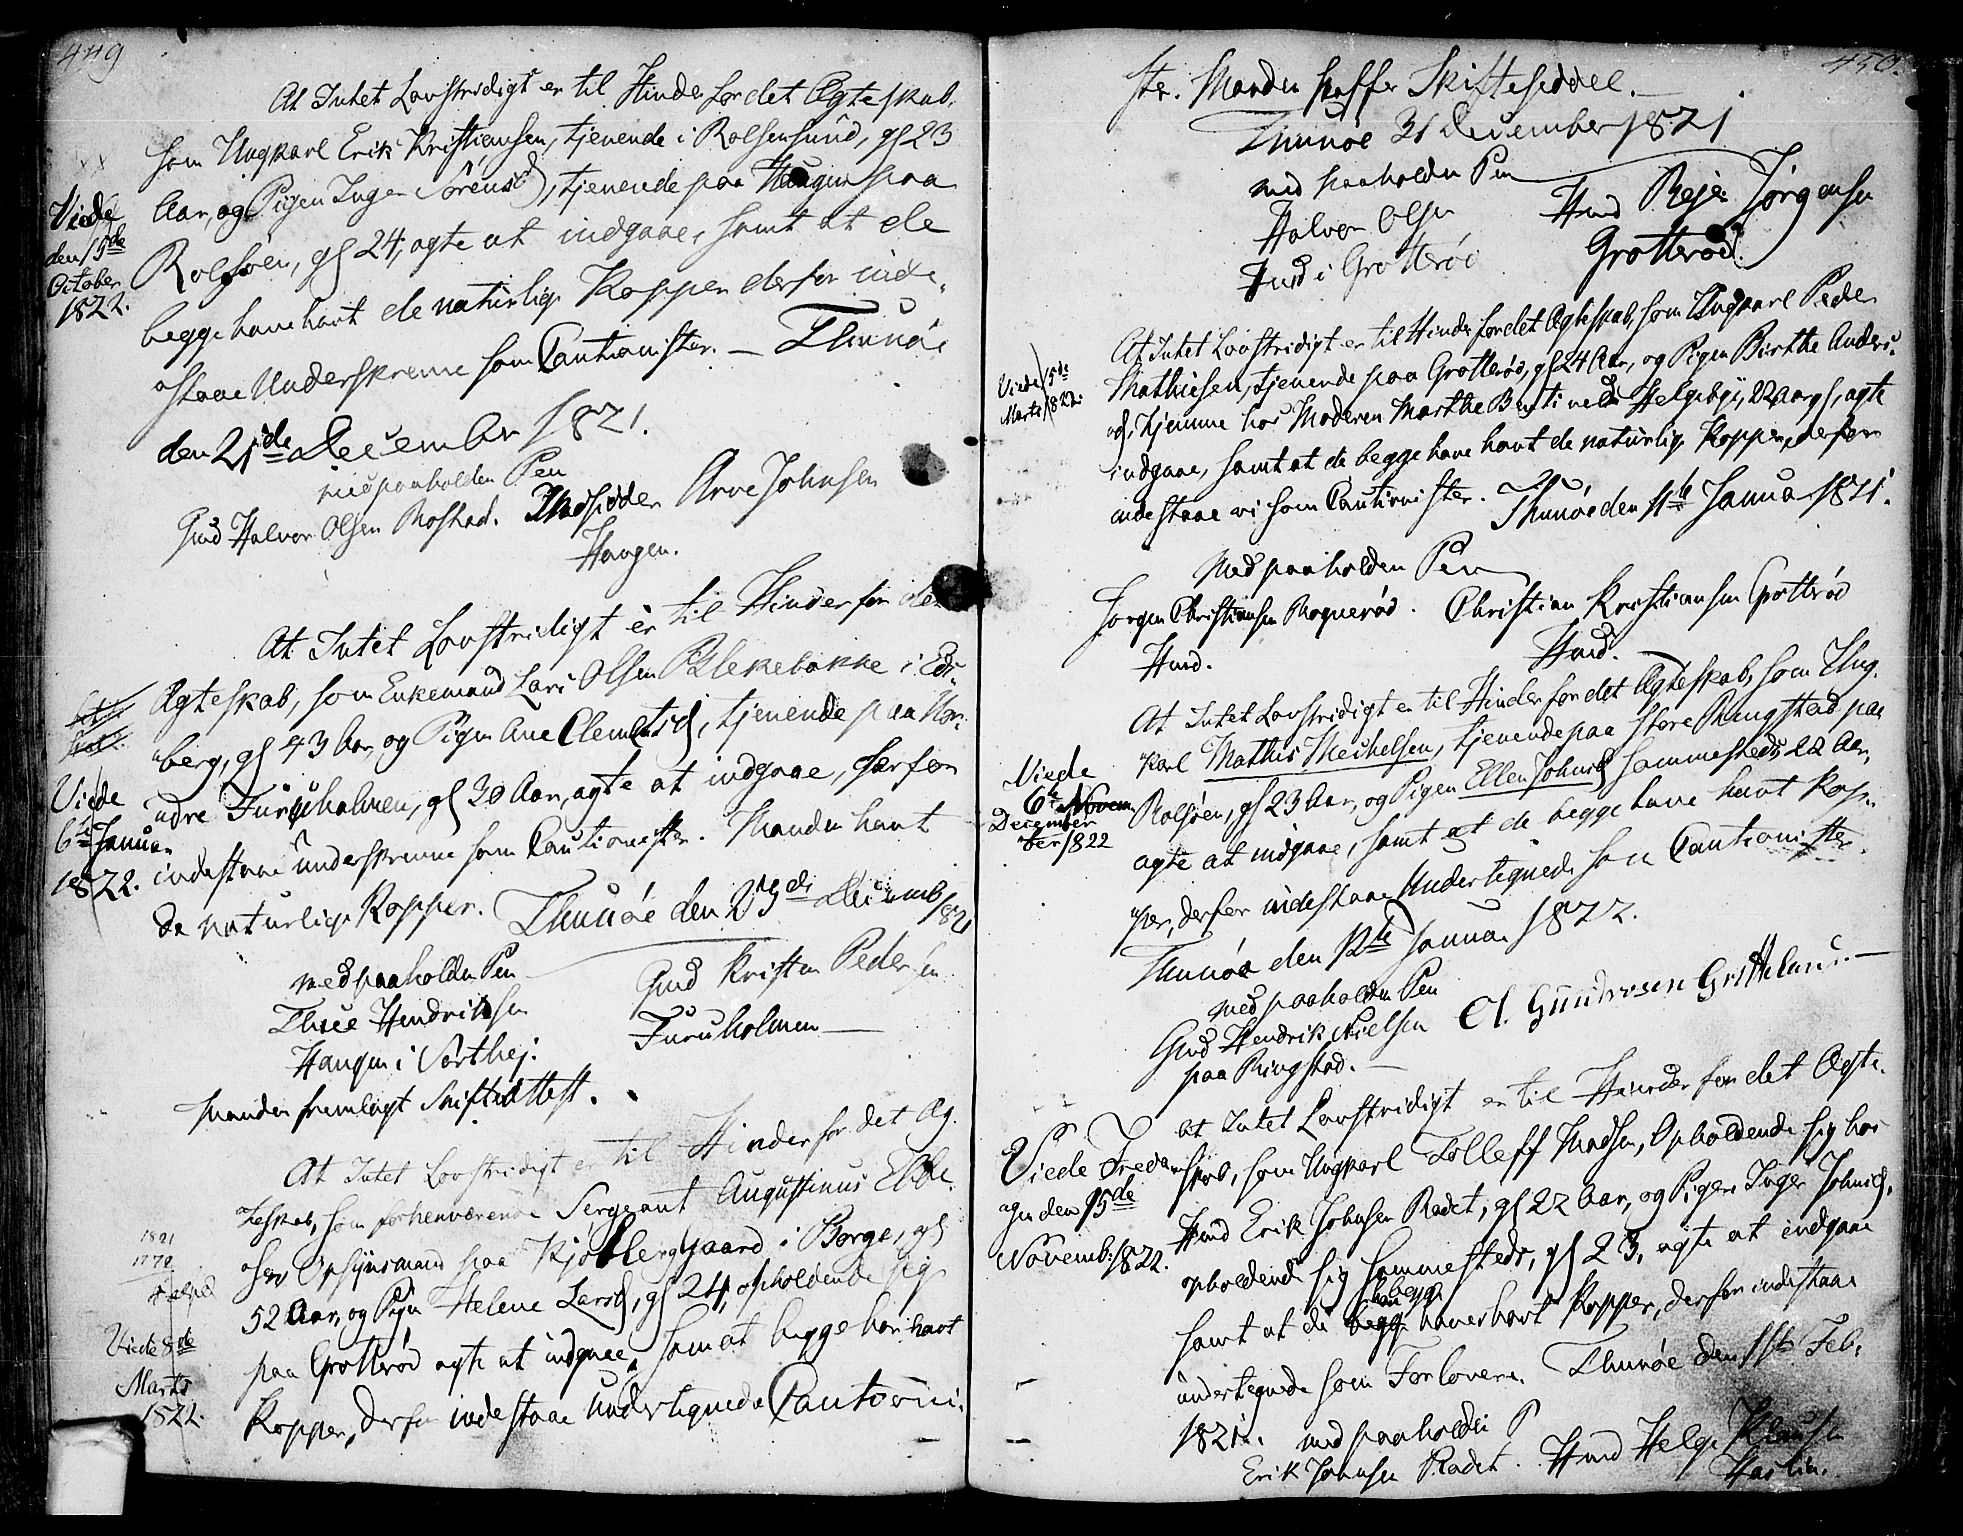 449
At Intet Lovstridigt er til Hinder for det Ægteskab,
som Ungkarl Erik Kristiansen, tjenende i Rolsensund, gl 23
Aar, og Pigen Inger Sörensd, tjenende paa Haugen paa
Rolsöen, gl 24, agte at indgaae, samt at de
begge have havt de naturlige Kopper derfor inde-
staae Underskrevne som Cautionister. — Thunöe
den 21de December 1821.
med paaholden Pen
Gmd Halvor Olsen Rostad. Huusfolk Arne Johnsen
Haugen.
Viede
den 15de
October
1822.
At Intet Lovstridigt er til Hinder for det
Ægteskab, som Enkemand Lars Olsen Blekebakke i Ed-
berg, gl 43 Aar, og Pigen Ane Clemetsd, tjenende paa Nor-
dre Furuholmen, gl 30 Aar, agte at indgaae, derfor
indestaae underskrevne som Cautionister. Manden havt
de naturlige Kopper. Thunöe den 23de Decemb 1821
med paaholden Pen
Gmd Kristen Pedersen
Thue Hendriksen
Furuholmen —
Haugen i Sörthej.
Manden fremlagt Skifteattest.
Viede
6te Januar
1822.
At Intet Lovstridigt er til Hinder for det Æg-
teskab, som forhenværende Sergeant Augustinus Ebbe-
sen Opsynsmand paa Kjölberggaard i Borge, gl
52 Aar, og Pigen Helene Larsd, gl 24, opholdende sig
paa Grotteröd agte at indgaae, som at begge har havt
Kopper, derfor indestaae undertegnede Cautioni-
1821
1770
Viede 8de
Marts
1822.
450.
ster. Manden skaffer Skifteseddel. —
Thunöe 31 December 1821
med paaholden Pen
Halvor Olsen
Huusmd i Grotteröd
Huusmd Rejer Jörgensen
Grotteröd.
At Intet Lovstridigt er til Hinder for det Ægteskab, som Ungkarl Peder
Mathiesen, tjenende paa Grotteröd, gl 24 Aar, og Pigen Birthe Anders-
d, hjemme hos Moderen Marthe Bentsd ved Helgeby, 22 aar gl, agte
indgaae, samt at de begge have havt de naturlige Kopper, derfor
indestaae vi som Cautionister. Thunöe den 11te Januar 1821.
Med paaholden Pen
Jörgen Christiansen Rogneröd. Christian Kristiansen Grotteröd
Huusmd. Huusmd.
Viede 15de
Marts 1822.
At Intet Lovstridigt er til Hinder for det Ægteskab, som Ung-
karl Mathis Mechelsen, tjenende paa store Ringstad paa
Rolsöen, gl 23 Aar, og Pigen Ellen Johnsd sammesteds 22 Aar,
agte at indgaae, samt at de begge have havt Kop-
per, derfor indestaae Undertegnede som Cautionister.
Thunöe den 12te Januar 1822.
med paaholden Pen
Gmd Hendrik Nielsen
paa Ringstad. —
Cl. Gundersen Gresslaus. —
Viede
6te Novem
December
ber 1822
At Intet Lovstridigt er til Hinder for det Ægte-
skab, som Ungkarl Tolleff Madsen, Opholdende sig hos
Huusmd Erik Johnsen Rödet, gl 22 Aar, og Pigen Inger Johnsd,
opholdende sig sammesteds, gl 23, agte at indgaae
samt at de begge haver havt Kopper, derfor indestaae
undertegnede som Forlovere. Thunöe den 11te Feb.
1821. med paaholden P
Erik Johnsen Rödet. Huusmd Helge Klausen
Haslin.
Viede Freda-
gen den 15de
Novemb: 1822.